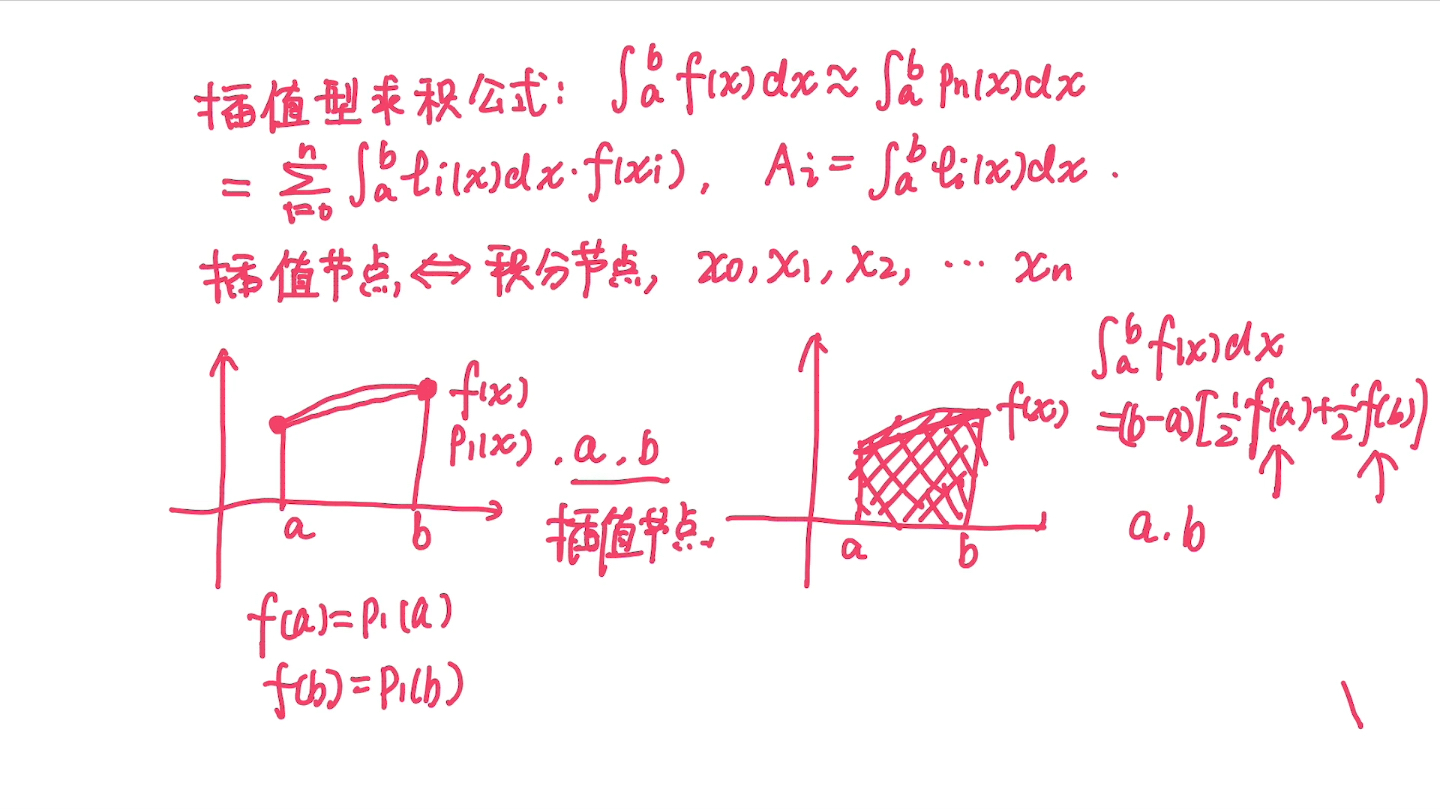 插值型求积公式: ∫_a^b f(x)dx≈∫_a^b Pn(x)dx
=∑_{i=0}^n ∫_a^b ℓi(x)dx·f(xi), Ai=∫_a^b ℓi(x)dx.
插值节点, ⇔ 积分节点, x0, x1, x2, … xn
f(x)
P1(x)
a
b
.a.b
插值节点.
f(a)=P1(a)
f(b)=P1(b)
f(x)
a
b
∫_a^b f(x)dx
=(b-a)[½f(a)+½f(b)]
a.b